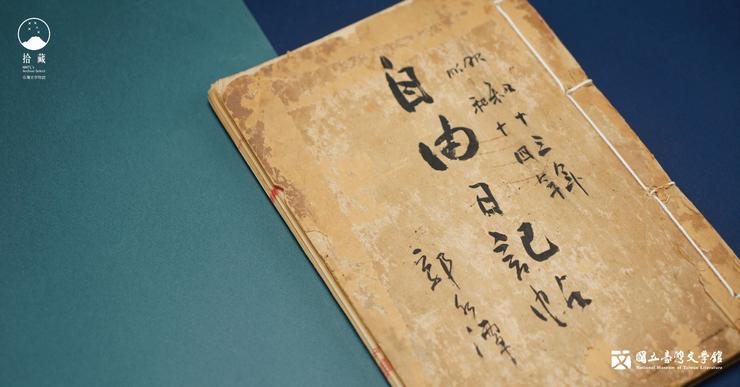 拾藏
NMTL's
Archive Select
台灣文學物語
昭和十三年
昭和十四年
自由日記帖
郭水潭
國立臺灣文學館
National Museum of Taiwan Literature